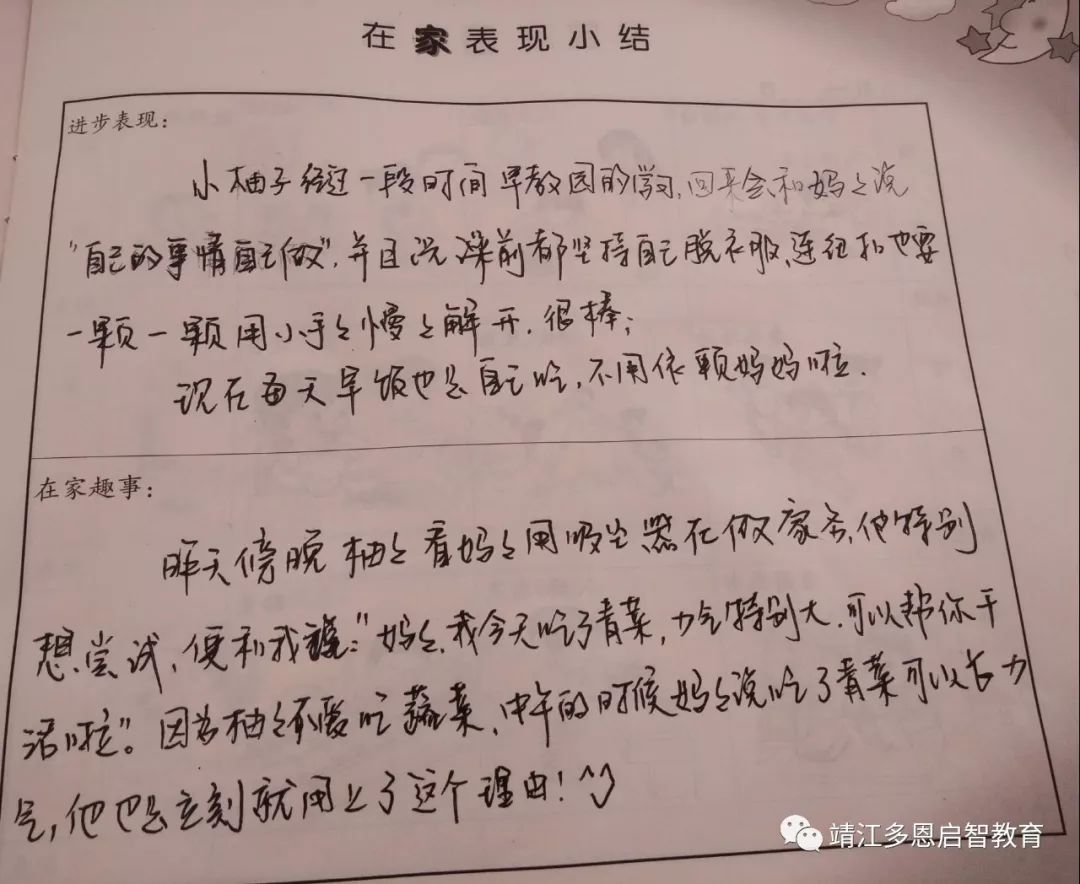 在家表现小结
进步表现：
小柚子经过一段时间早教园的学习，回来会和妈々说
"自己的事情自己做"，并且洗澡前都坚持自己脱衣服，连纽扣也要
一颗一颗用小手々慢々解开，很棒；
现在每天早饭也是自己吃，不用依赖妈妈啦．
在家趣事：
昨天傍晚柚々看妈々用吸尘器在做家务，他特别
想尝试，便和我说："妈々，我今天吃了青菜，力气特别大，可以帮你干
活啦"。因为柚々不爱吃蔬菜，中午的时候妈々说吃了青菜可以长力
气，他也是立刻就用上了这个理由！^^
靖江多恩启智教育